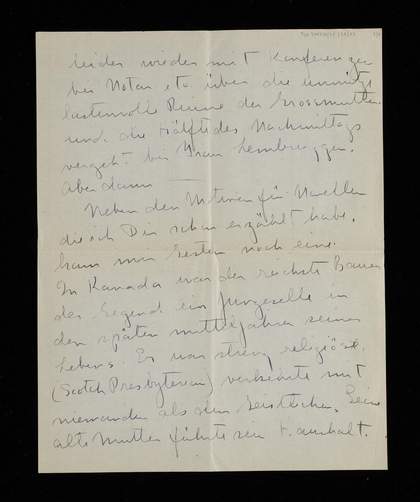 leider wieder mit Konferenzen
bei Notar etc. über die unnütz
lastenvolle Ruine der Grossmutter
und die Hälfte des Nachmittags
vergeht bei Frau
Aber dann
Neben den Motiven für Novellen
die ich Dir schon erzählt habe,
kam mir gestern noch eine.
In Kanada war der reichste Bauer
der Gegend ein Junggeselle in
den späten Mitteljahren seines
Lebens. Er war streng religiös.
(Scotch Presbyterian) verkehrte mit
niemandem als dem Geistlichen. Seine
alte Mutter führte sein